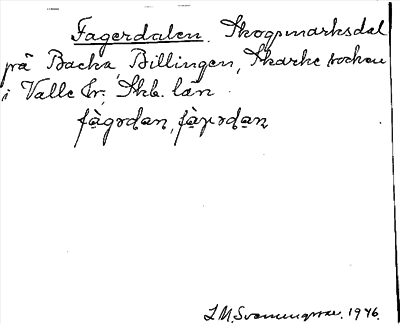 Fagerdalen. Skogsmarksdal
på Backa, Billingen, Skarke socken
i Valle hr, Skb. län.
fàgədan, fàɡədan
I.M. 1946.